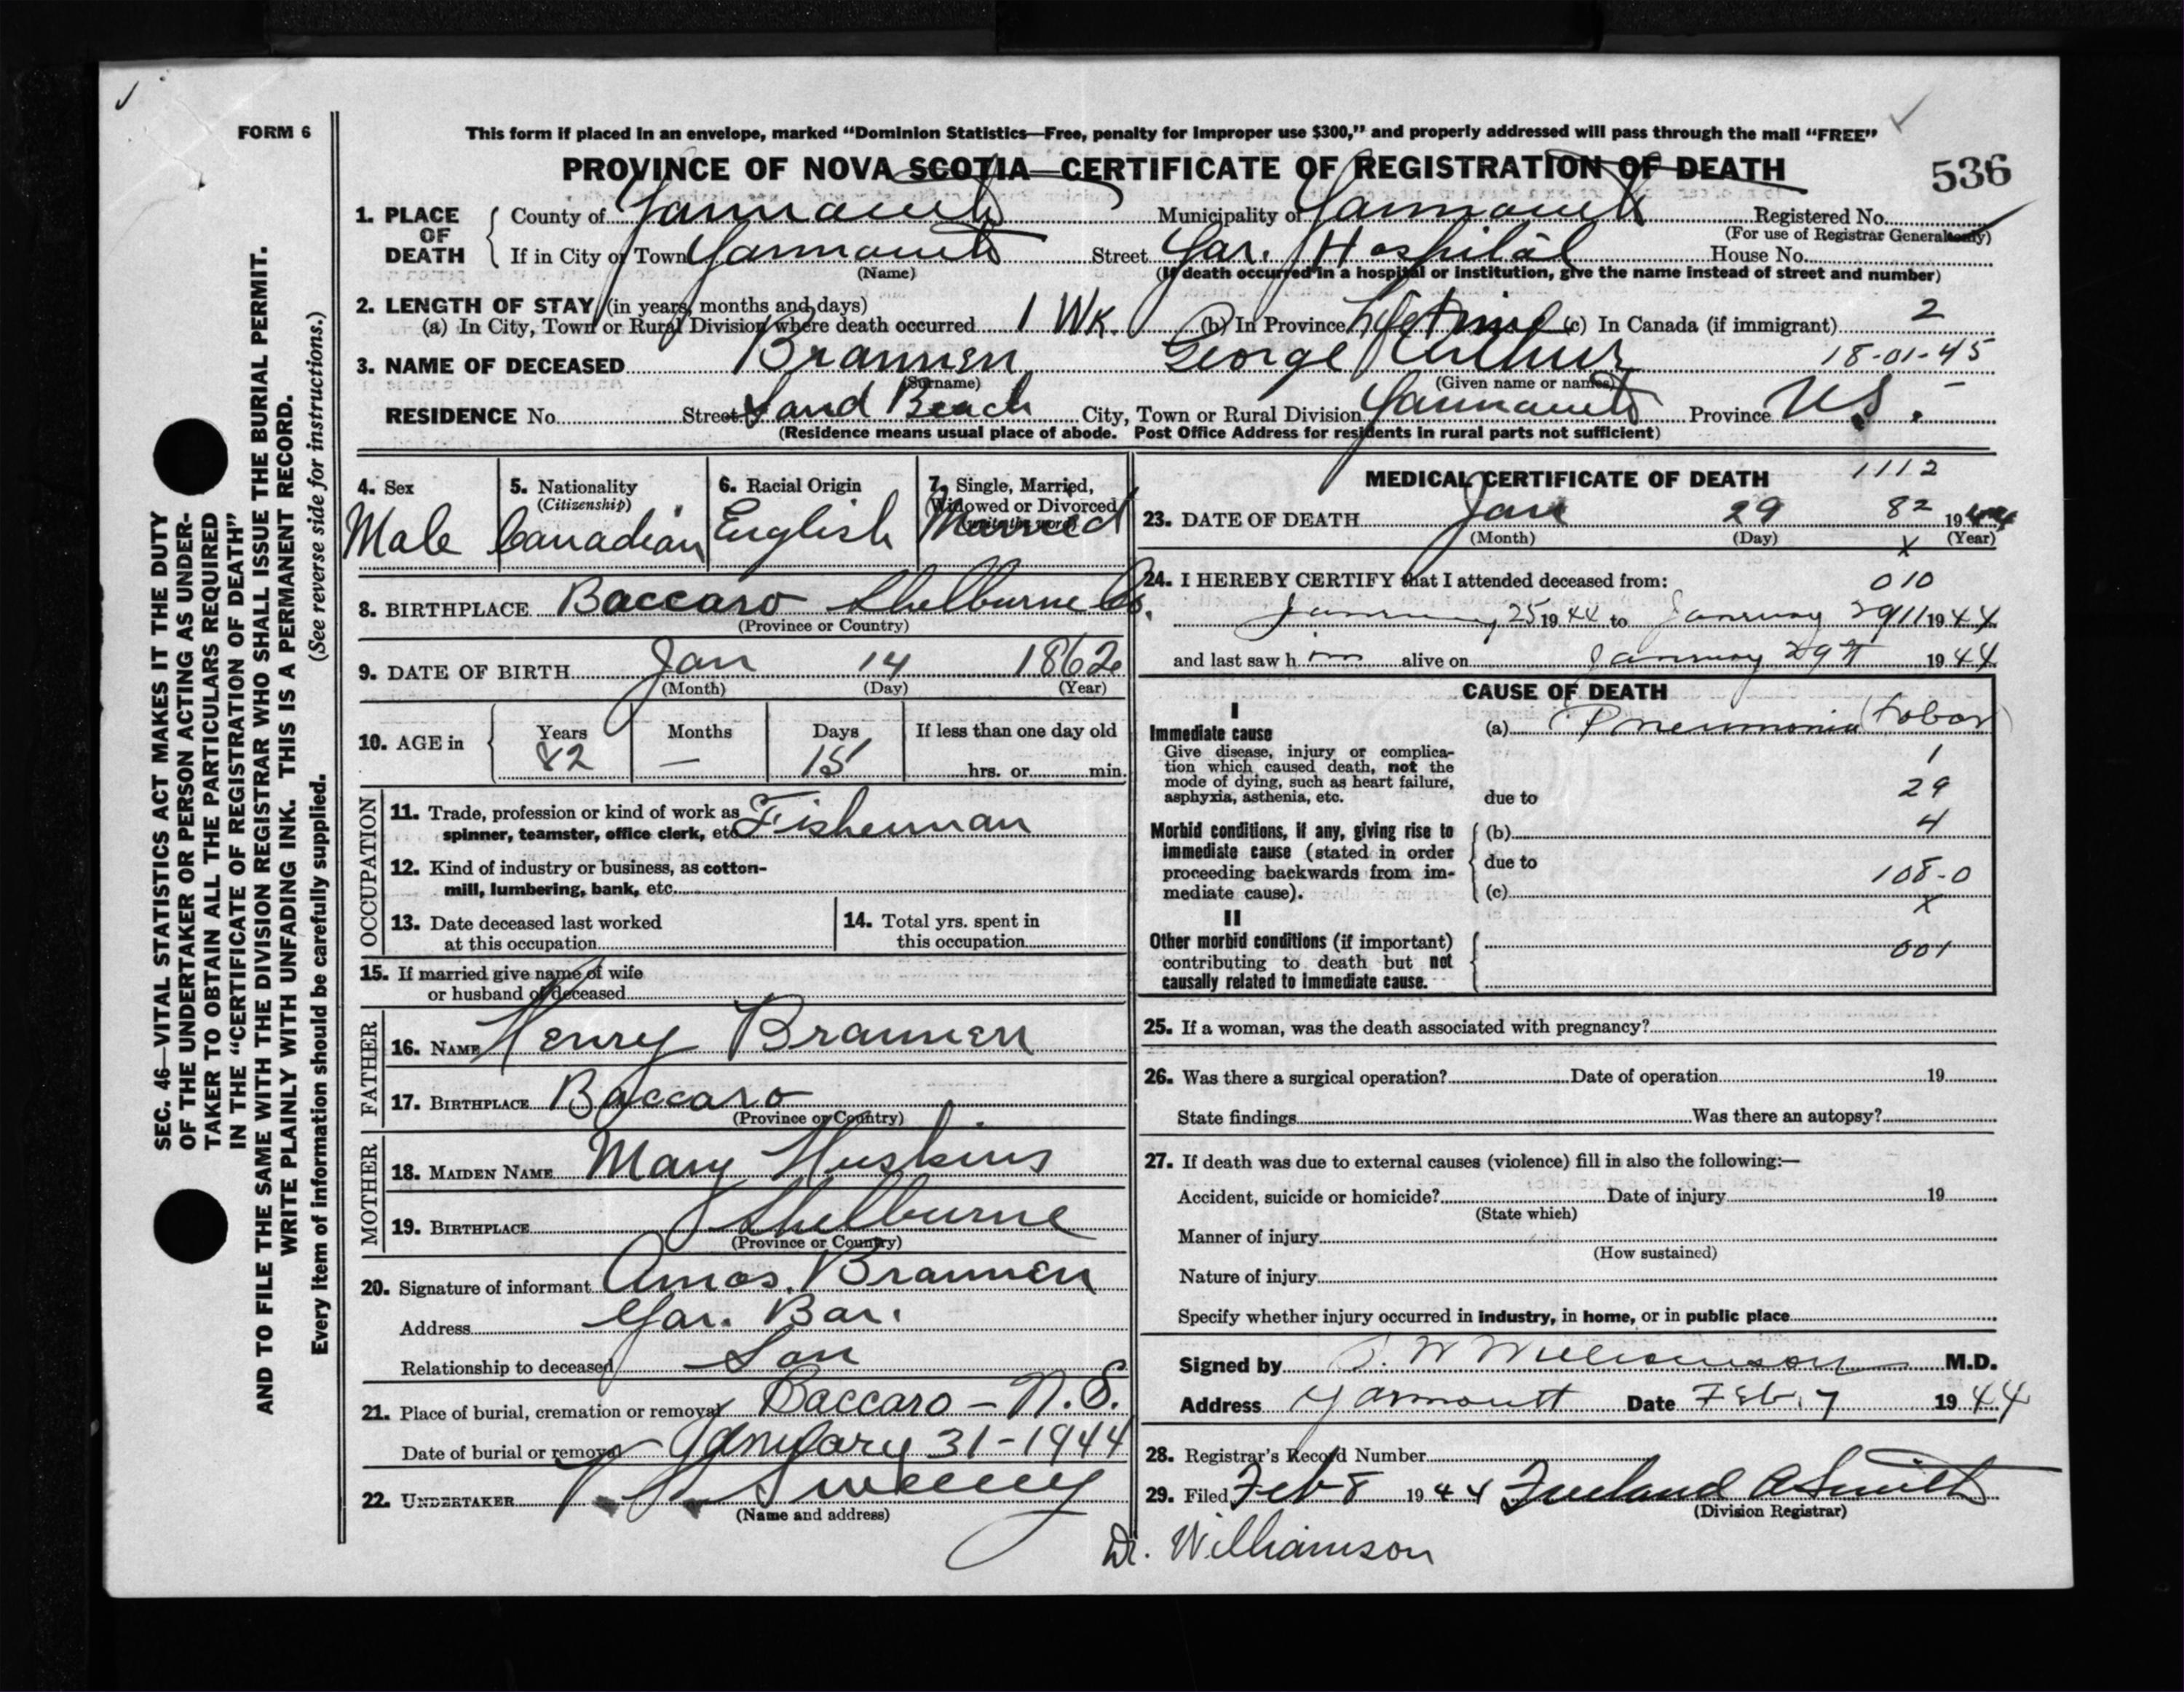 FORM 6
This form if placed in an envelope, marked “Dominion Statistics—Free, penalty for improper use $300,” and properly addressed will pass through the mail “FREE”
PROVINCE OF NOVA SCOTIA—CERTIFICATE OF REGISTRATION OF DEATH
536
1. PLACE OF DEATH County of Yarmouth Municipality of Yarmouth Registered No.
(For use of Registrar General only)
If in City or Town Yarmouth Street Yar. Hospital House No.
(Name) (If death occurred in a hospital or institution, give the name instead of street and number)
2. LENGTH OF STAY (in years, months and days)
(a) In City, Town or Rural Division where death occurred 1 Wk. (b) In Province Lifetime (c) In Canada (if immigrant) 2
3. NAME OF DECEASED Brannen George Arthur 18-01-45
(Surname) (Given name or names)
RESIDENCE No. Street Sand Beach City, Town or Rural Division Yarmouth Province N.S.
(Residence means usual place of abode. Post Office Address for residents in rural parts not sufficient)
4. Sex
Male
5. Nationality
(Citizenship)
Canadian
6. Racial Origin
English
7. Single, Married,
Widowed or Divorced
(write the word)
Married
8. BIRTHPLACE Baccaro Shelburne Co.
(Province or Country)
9. DATE OF BIRTH Jan 14 1862
(Month) (Day) (Year)
10. AGE in Years Months Days If less than one day old
82 — 15 hrs. or min.
OCCUPATION
11. Trade, profession or kind of work as
spinner, teamster, office clerk, etc. Fisherman
12. Kind of industry or business, as cotton-
mill, lumbering, bank, etc.
13. Date deceased last worked
at this occupation
14. Total yrs. spent in
this occupation
15. If married give name of wife
or husband of deceased
FATHER
16. NAME Henry Brannen
17. BIRTHPLACE Baccaro
(Province or Country)
MOTHER
18. MAIDEN NAME Mary Huskins
19. BIRTHPLACE Shelburne
(Province or Country)
20. Signature of informant Amos Brannen
Address Yar. Bar.
Relationship to deceased Son
21. Place of burial, cremation or removal Baccaro - N.S.
Date of burial or removal January 31-1944
22. UNDERTAKER Sweeney
(Name and address)
MEDICAL CERTIFICATE OF DEATH 1112
23. DATE OF DEATH Jan 29 82 1944
(Month) (Day) (Year)
x
24. I HEREBY CERTIFY that I attended deceased from: 010
January 25 1944 to January 29 1944
and last saw him alive on January 29th 1944
CAUSE OF DEATH
I
Immediate cause
Give disease, injury or complica-
tion which caused death, not the
mode of dying, such as heart failure,
asphyxia, asthenia, etc.
(a) Pneumonia (Lobar)
1
29
due to
Morbid conditions, if any, giving rise to
immediate cause (stated in order
proceeding backwards from im-
mediate cause).
(b) 4
due to
108-0
(c)
x
II
Other morbid conditions (if important)
contributing to death but not
causally related to immediate cause.
001
25. If a woman, was the death associated with pregnancy?
26. Was there a surgical operation? Date of operation 19
State findings Was there an autopsy?
27. If death was due to external causes (violence) fill in also the following:—
Accident, suicide or homicide? Date of injury 19
(State which)
Manner of injury
(How sustained)
Nature of injury
Specify whether injury occurred in industry, in home, or in public place
Signed by W Williamson M.D.
Address Yarmouth Date Feb. 7 1944
28. Registrar's Record Number
29. Filed Feb 8 1944 Freeland A Smith
(Division Registrar)
Dr. Williamson
SEC. 46—VITAL STATISTICS ACT MAKES IT THE DUTY
OF THE UNDERTAKER OR PERSON ACTING AS UNDER-
TAKER TO OBTAIN ALL THE PARTICULARS REQUIRED
IN THE “CERTIFICATE OF REGISTRATION OF DEATH”
AND TO FILE THE SAME WITH THE DIVISION REGISTRAR WHO SHALL ISSUE THE BURIAL PERMIT.
WRITE PLAINLY WITH UNFADING INK. THIS IS A PERMANENT RECORD.
Every item of information should be carefully supplied. (See reverse side for instructions.)